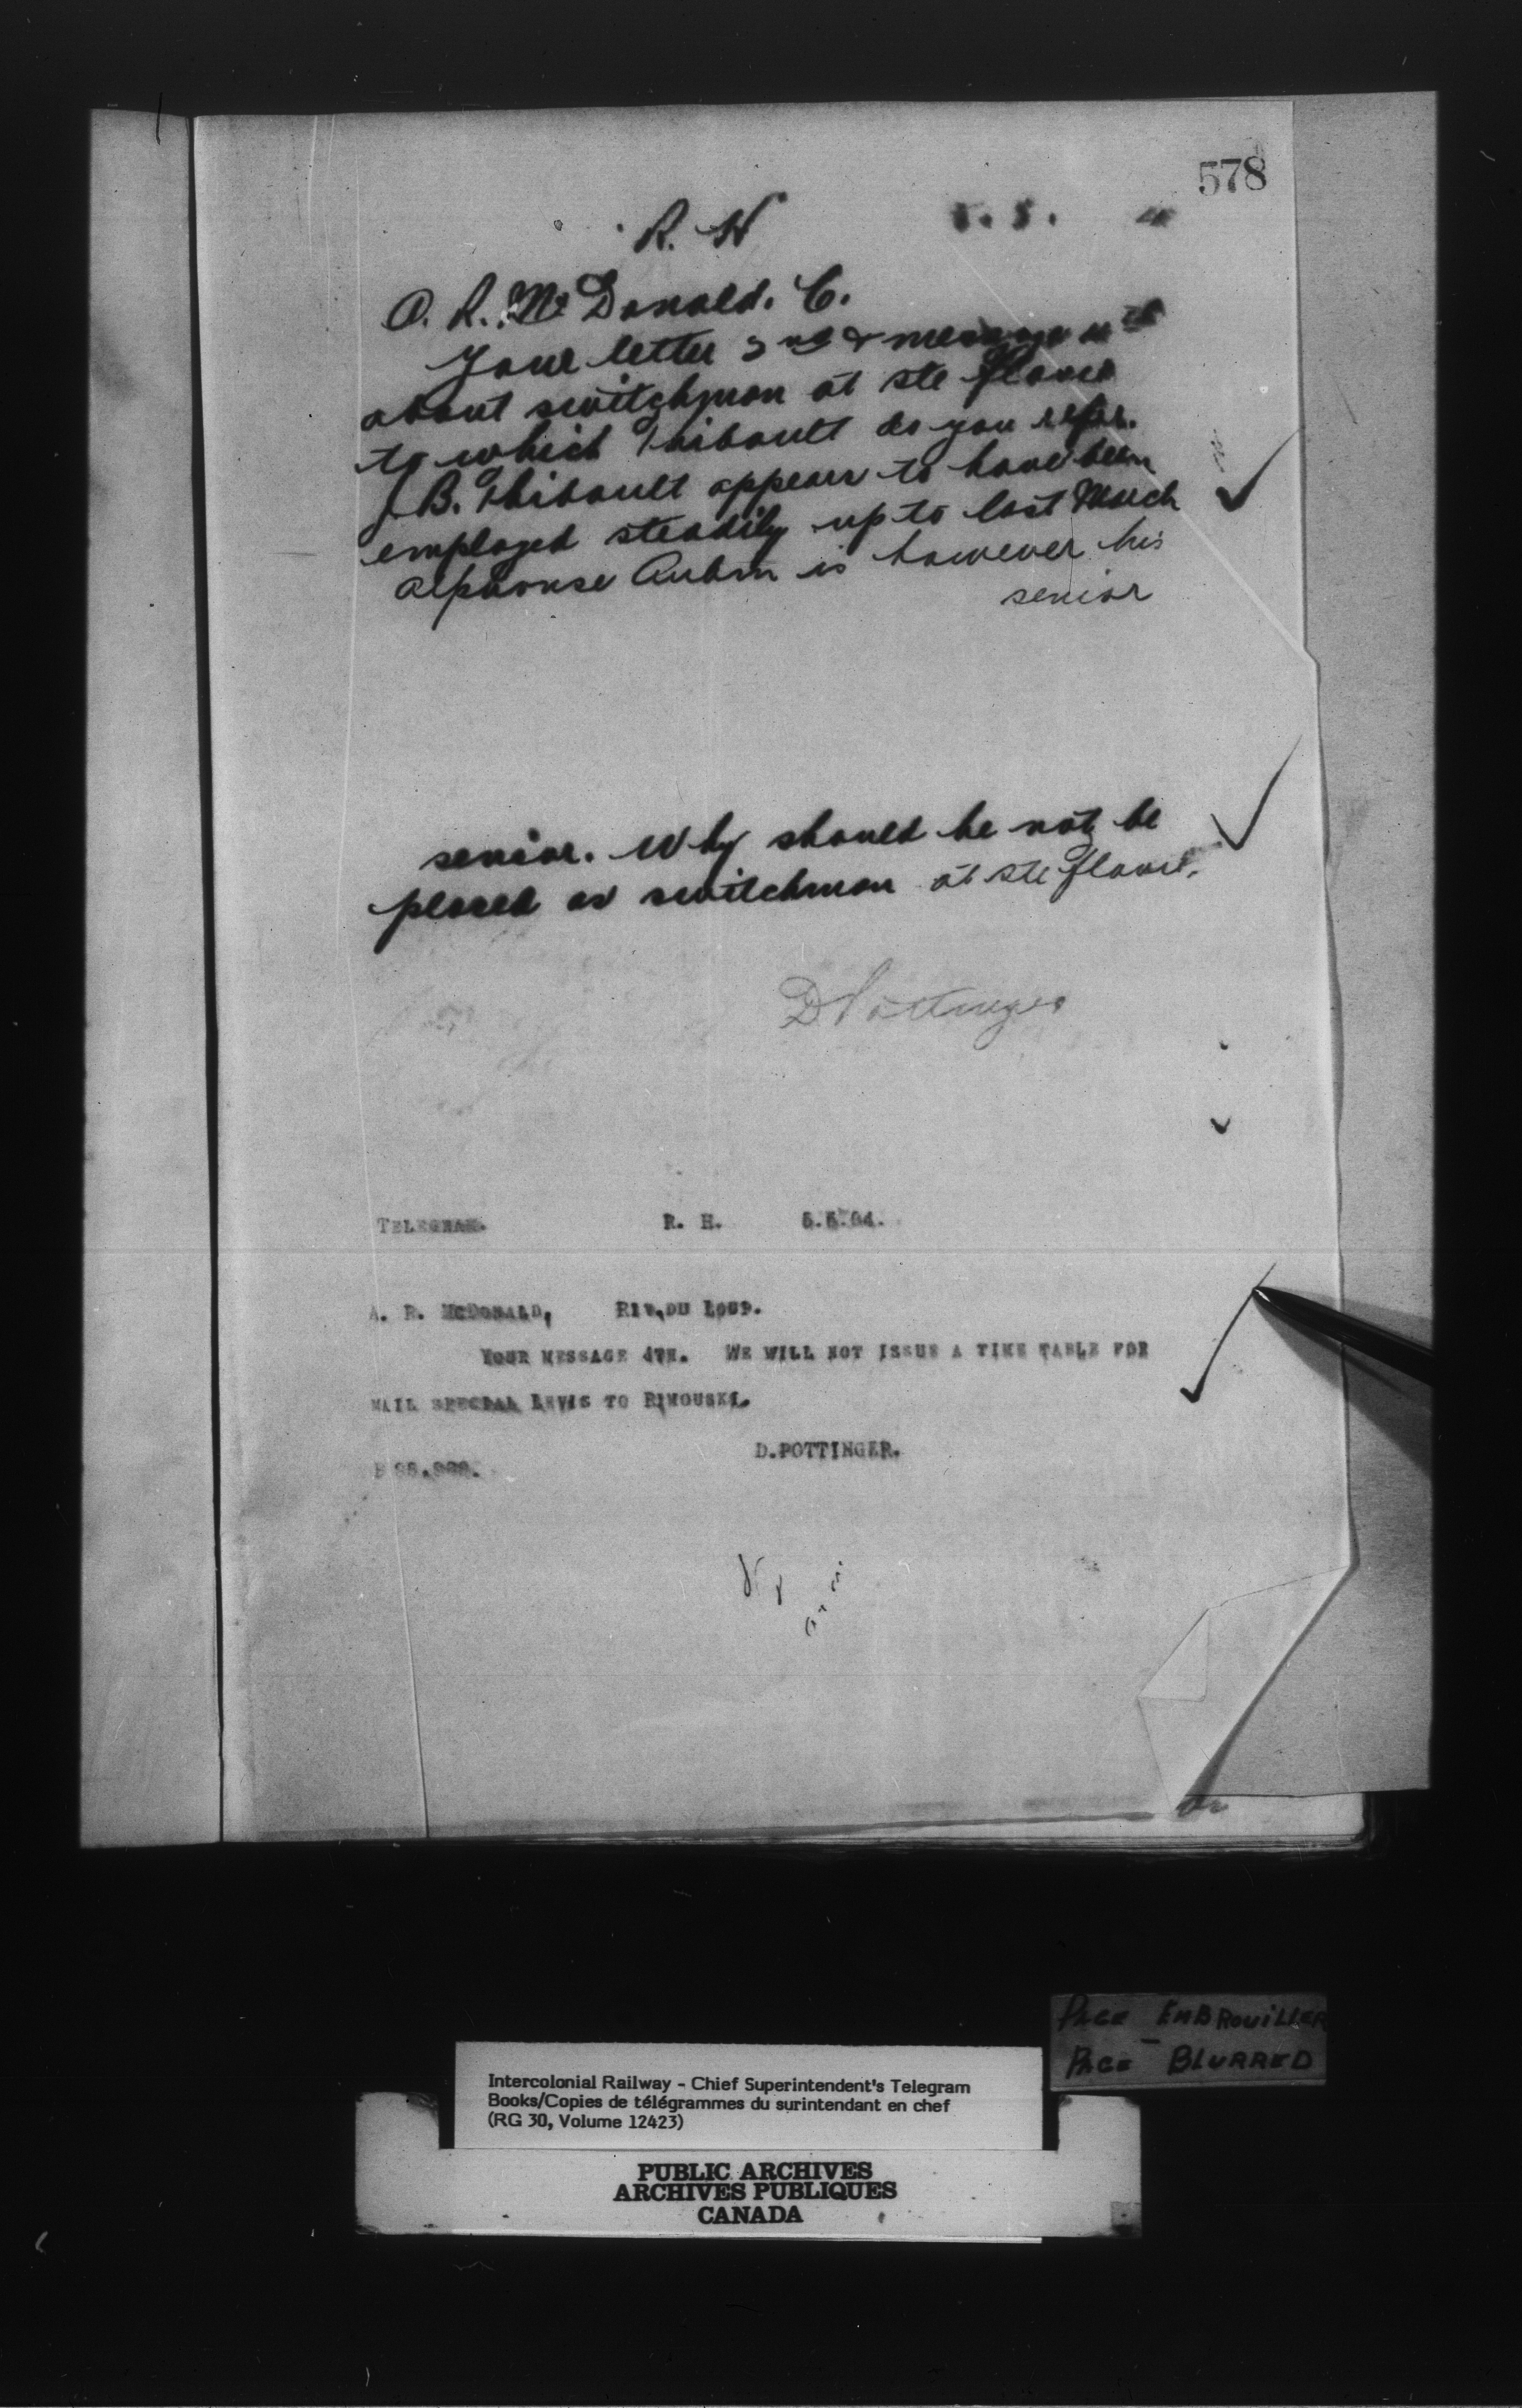 578
R. H
A. R. McDonald. C.
Your letter 3rd & message 4th
about switchman at Ste Flavie
to which Thibault do you refer.
J. B. Thibault appears to have been
employed steadily up to last March
Alphonse Aubin is however his
senior
senior. Why should he not be
placed as switchman at Ste Flavie.
D Pottinger
TELEGRAM. R. H. 5.5.94.
A. R. MCDONALD, RIV.DU LOUP.
YOUR MESSAGE 4TH. WE WILL NOT ISSUE A TIME TABLE FOR
MAIL SPECIAL LEVIS TO RIMOUSKI.
D.POTTINGER.
PAGE EMBROUILLER
PAGE - BLURRED
Intercolonial Railway - Chief Superintendent's Telegram
Books/Copies de télégrammes du surintendant en chef
(RG 30, Volume 12423)
PUBLIC ARCHIVES
ARCHIVES PUBLIQUES
CANADA